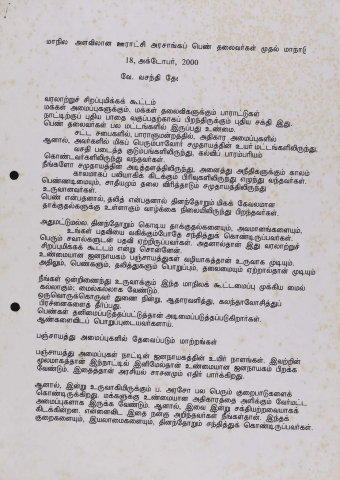 மாநில அளவிலான ஊராட்சி அரசாங்கப் பெண் தலைவர்கள் முதல் மாநாடு
18, அக்டோபர், 2000
வே. வசந்தி தேவி
வரலாற்றுச் சிறப்புமிக்கக் கூட்டம்
மக்கள் அமைப்புகளுக்கும், மக்கள் தலைவிகளுக்கும் பாராட்டுகள்
நாட்டிற்குப் புதிய பாதை வகுப்பதற்காகப் பிறந்திருக்கும் புதிய சக்தி இது.
பெண் தலைவர்கள் பல மட்டங்களில் இருப்பது உண்மை.
சட்ட சபைகளில், பாராளுமன்றத்தில், அதிகார அமைப்புகளில்
ஆனால், அவர்களில் மிகப் பெரும்பாலோர் சமுதாயத்தின் உயர் மட்டங்களிலிருந்து,
வசதி படைத்த குடும்பங்களிலிருந்து, கல்விப் பாரம்பரியம்
கொண்டவர்களிலிருந்து வந்தவர்கள்.
நீங்களோ சமுதாயத்தின் அடித்தளத்திலிருந்து, அனைத்து அநீதிகளுக்கும் காலம்
காலமாகப் பலியாகிக் கிடக்கும் பிரிவுகளிலிருந்து எழுந்து வந்தவர்கள்.
பெண்ணடிமையும், சாதீயமும் தலை விரித்தாடும் சமுதாயத்திலிருந்து
உருவானவர்கள்.
பெண் என்பதனால், தலித் என்பதனால் தினந்தோறும் மிகக் கேவலமான
தாக்குதல்களுக்கு உள்ளாகும் வாழ்க்கை நிலையிலிருந்து பிறந்தவர்கள்.
அதுமட்டுமல்ல. தினந்தோறும் கொடிய தாக்குதல்களையும், அவமானங்களையும்,
உங்கள் பதவியை வகிக்கும்போதே சந்தித்துக் கொண்டிருப்பவர்கள்.
பெரும் சவால்களுடன் பதவி ஏற்றிருப்பவர்கள். அதனால்தான் இது வரலாற்றுச்
சிறப்புமிக்கக் கூட்டம் என்று சொன்னேன்.
உண்மையான ஜனநாயகம் பஞ்சாயத்துகள் வழியாகத்தான் உருவாக முடியும்.
அதிலும், பெண்களும், தலித்துகளும் பொறுப்பும், தலைமையும் ஏற்றால்தான் முடியும்
நீங்கள் ஒன்றிணைந்து உருவாக்கும் இந்த மாநிலக் கூட்டமைப்பு முக்கிய மைல்
கல்லாகும்; மைல்கல்லாக வேண்டும்.
ஒருவொருக்கொருவர் துணை நின்று, ஆதாரவளித்து, கலந்தாலோசித்துப்
பிரச்சனைகளைத் தீர்ப்பது.
பெண்கள் தனிமைப்படுத்தப்பட்டுத்தான் அடிமைப்படுத்தப்படுகிறார்கள்.
ஆண்களைவிடப் பொறுப்புடையவர்களாய்.
பஞ்சாயத்து அமைப்புகளில் தேவைப்படும் மாற்றங்கள்
பஞ்சாயத்து அமைப்புகள் நாட்டின் ஜனநாயகத்தின் உயிர் நாளங்கள். இவற்றின்
மூலமாகத்தான் இந்நாட்டில் இனிமேல்தான் உண்மையான ஜனநாயகம் பிறக்க
வேண்டும். இதைத்தான் அரசியல் சாசனமும் எதிர் பார்க்கிறது.
ஆனால், இன்று உருவாகியிருக்கும் ப. அரசோ பல பெரும் குறைபாடுகளைக்
கொண்டிருக்கிறது. மக்களுக்கு உண்மையான அதிகாரத்தை அளிக்கும் வேர்மட்ட
அமைப்புகளாக இருக்க வேண்டும். ஆனால், இவை இன்று சக்தியற்றவையாகக்
கிடக்கின்றன. என்னைவிட இதை நன்கு அறிந்தவர்கள் நீங்கள்தான். இந்தக்
குறைகளையும், இயலாமைகளையும், தினந்தோறும் சந்தித்துக் கொண்டிருப்பவர்கள்.